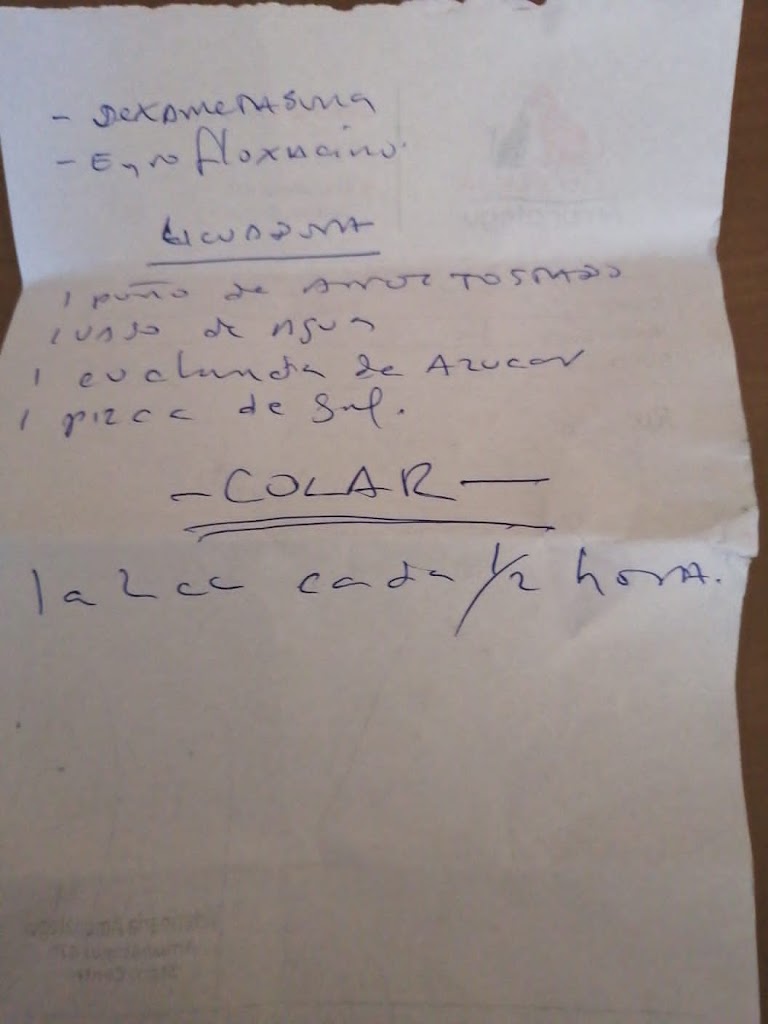 - Dexametasona
- Enrofloxacino.
Licuadora
1 puño de arroz tostado
1 vaso de agua
1 cucharada de Azucar
1 pizca de Sal.
- COLAR -
1 a 2 cc cada 1/2 hora.